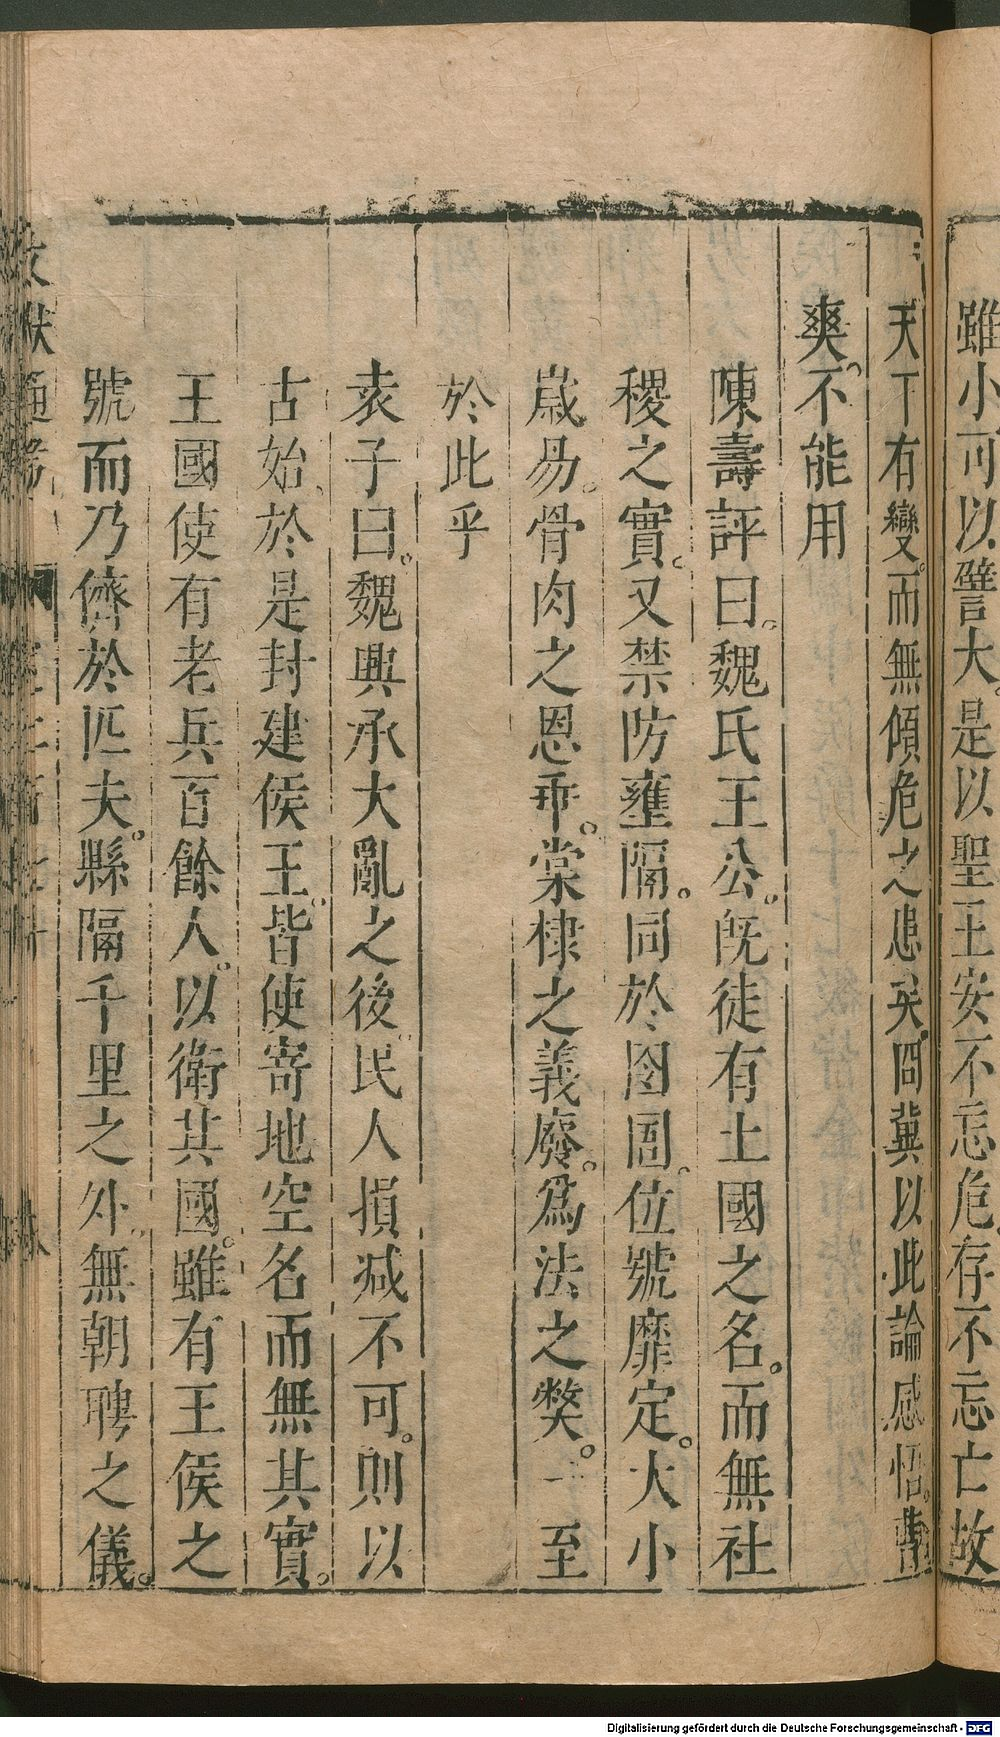 雖小可以譬大。是以聖王安不忘危。存不忘亡。故
天下有變。而無傾危之患矣。冏冀以此論感悟。曹
爽。不能用
陳壽評曰。魏氏王公。旣徒有土國之名。而無社
稷之實。又禁防壅隔。同於囹圄。位號靡定。大小
歲易。骨肉之恩乖。棠棣之義廢。爲法之獘。一至
於此乎
袁子曰。魏興承大亂之後。民人損减不可。則以
古始。於是封建侯王。皆使寄地空名而無其實。
王國使有老兵百餘人。以衛其國。雖有王侯之
號而乃儕於匹夫。縣隔千里之外。無朝聘之儀。
文獻通考
Digitalisierung gefördert durch die Deutsche Forschungsgemeinschaft - DFG